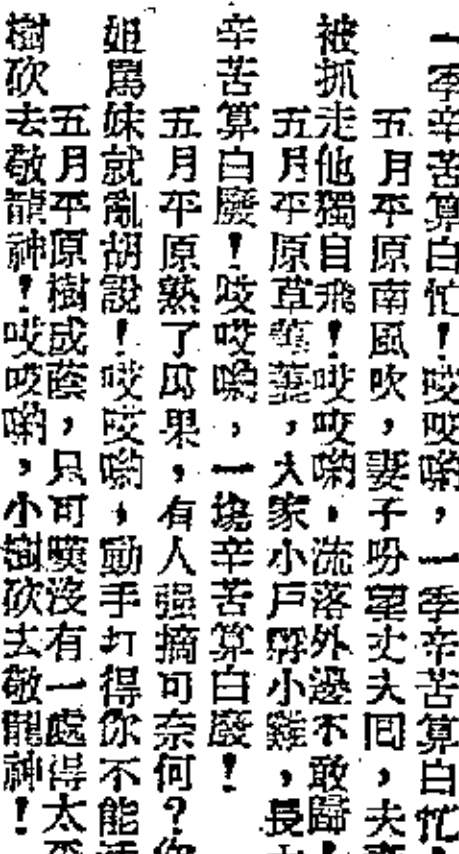 一季辛苦算白忙！哎哎喲，一季辛苦算白忙！
五月平原南風吹，妻子吩望丈夫囘，夫妻
被抓走他獨自飛！哎哎喲，流落外邊不敢歸！
五月平原草萋萋，大家小戶孵小雞，長大
辛苦算白廢！哎哎喲，一塲辛苦算白廢！
五月平原熟了瓜果，有人强摘可奈何？你
姐駡妹就亂胡說！哎哎喲，動手打得你不能活
五月平原樹成蔭，只可嘆沒有一處得太平
樹砍去敬龍神！哎哎喲，小樹砍去敬龍神！